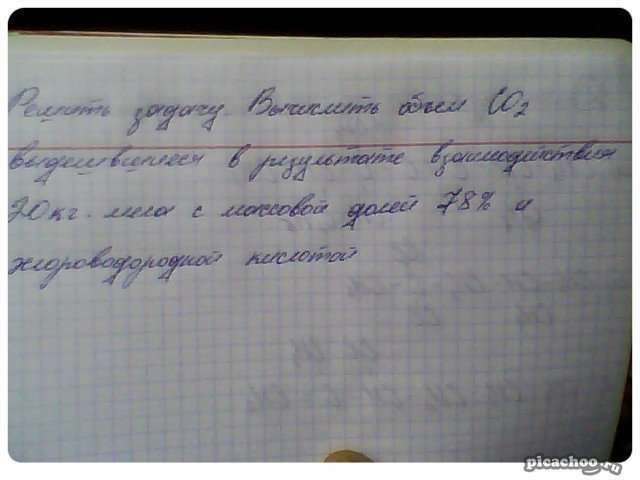 Решить задачу. Вычислить объем CO2
выделившиеся в результате взаимодействия
20кг. мела с массовой долей 78% и
хлороводородной кислотой
picachoo.ru